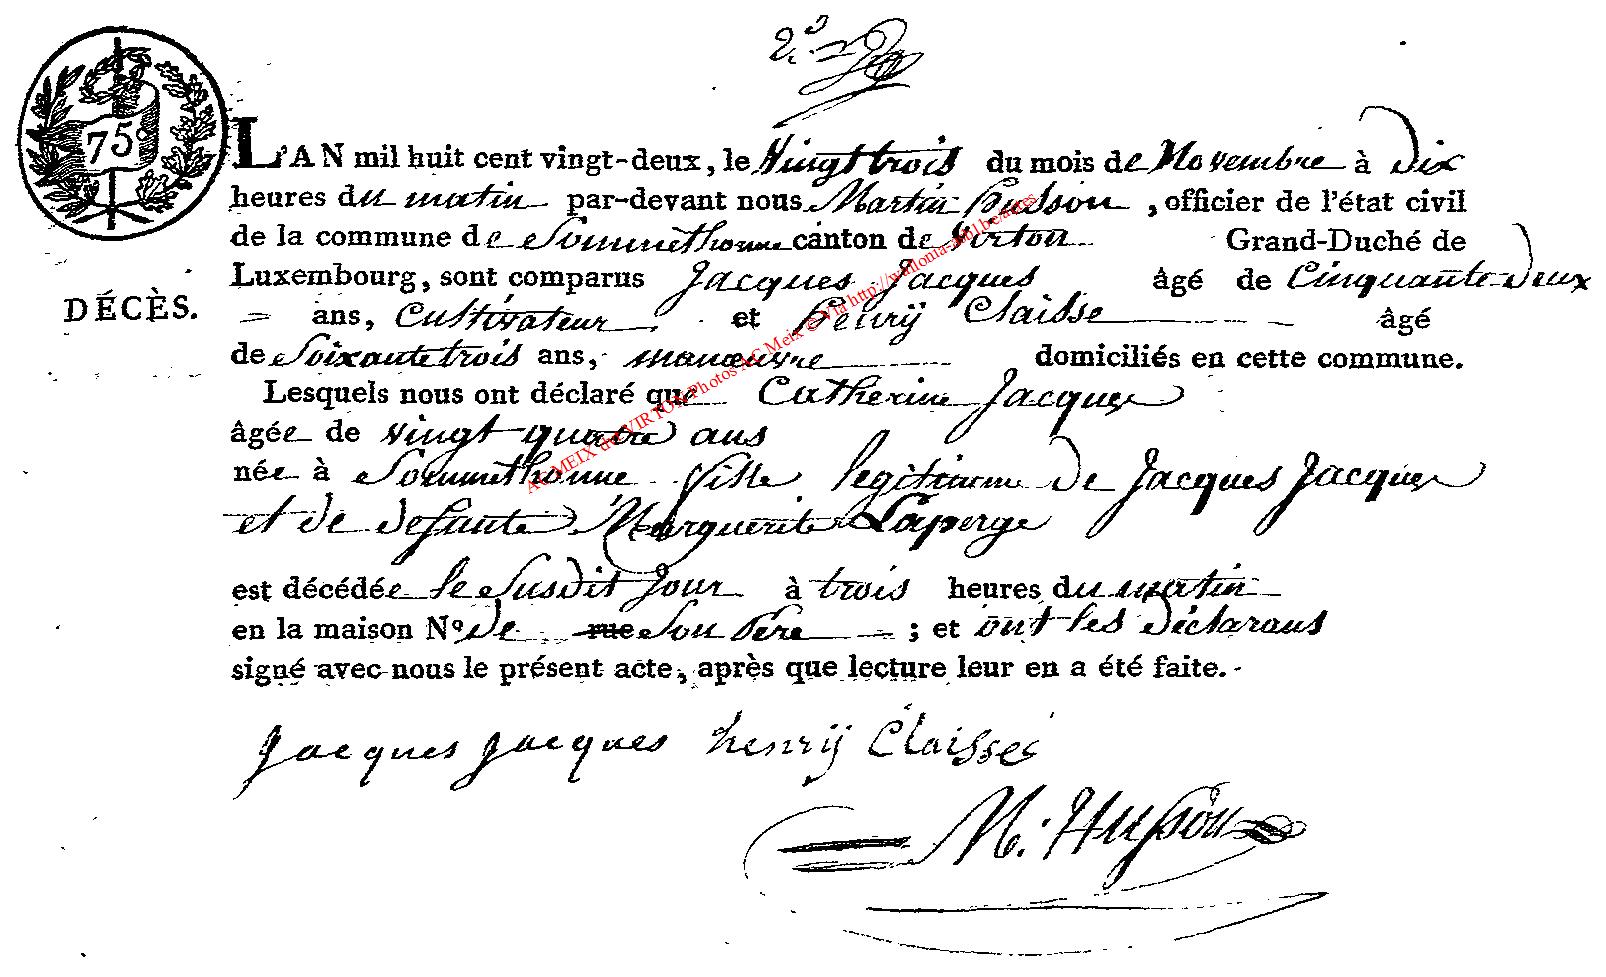 2.e
75
L'AN mil huit cent vingt-deux, le Vingt trois du mois de Novembre à Dix
heures du matin par-devant nous Martin Husson, officier de l'état civil
de la commune de Sommethonne canton de Virton Grand-Duché de
Luxembourg, sont comparus Jacques Jacques âgé de Cinquante-Deux
DÉCÈS.
ans, Cultivateur et henrÿ Claisse âgé
de Soixante trois ans, manœuvre domiciliés en cette commune.
Lesquels nous ont déclaré que Catherine Jacques
âgée de vingt quatre ans
née à Sommethonne fille legitime de Jacques Jacques
et de defunte Marguerite Laperge
est décédée le Susdit Jour à trois heures du matin
en la maison Nº de rue Son Père ; et ont les Déclarans
signé avec nous le présent acte, après que lecture leur en a été faite.
Jacques Jacques henrÿ Claisse
M. Husson
AC MEIX dvt VIRTON Photos AC Meix © Via http://wallonia-asbl.be/actes